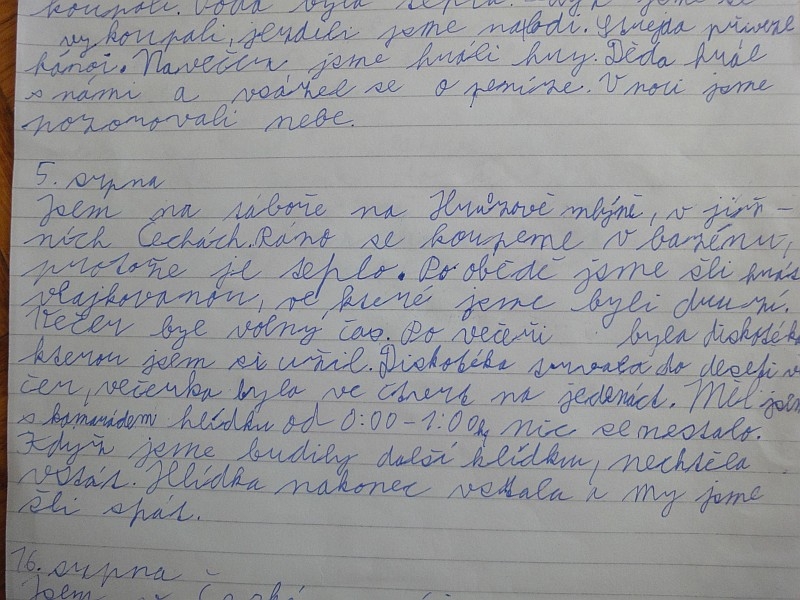 koupali. Voda byla teplá. jsme se
vykoupali, jezdili jsme na lodi. Strejda přivezl
kánoi. Navečer jsme hráli hry. Děda hrál
s námi a vsázel se o peníze. V noci jsme
pozorovali nebe.
5. srpna
Jsem na táboře na Hrůzově mlýně, v již-
ních Čechách. Ráno se koupeme v bazénu,
protože je teplo. Po obědě jsme šli hrát
vlajkovanou, ve které jsme byli druzí.
Večer byl volný čas. Po večeři byla diskotéka
kterou jsem si užil. Diskotéka trvala do deseti ve
čer, večerka byla ve čtvrt na jedenáct. Měl jsem
s kamarádem hlídku od 0:00-1:00h, nic se nestalo.
Když jsme budily další hlídku, nechtěla
vstát. Hlídka nakonec vstala a my jsme
šli spát.
16. srpna
Jsem